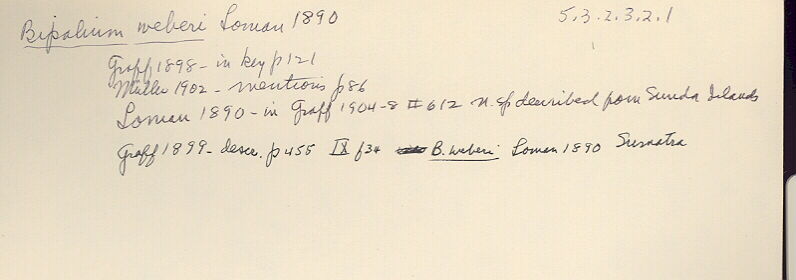 Bipalium weberi Loman 1890 5.3.2.3.2.1
Graff 1898 - in key p121
Müller 1902 - mentions p86
Loman 1890 - in Graff 1904-8 #612 n. sp described from Sunda Islands
Graff 1899 - descr. p455 IX f34 B. weberi Loman 1890 Sumatra